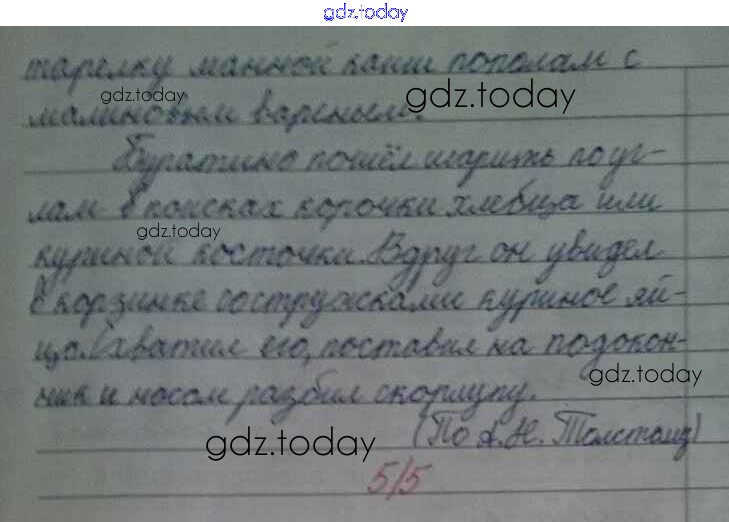 gdz.today
тарелку манной каши пополам с
gdz.today
gdz.today
малиновым вареньем.
Буратино пошёл шарить по уг-
лам в поисках корочки хлебца или
gdz.today
куриной косточки. Вдруг он увидел
в корзинке со стружками куриное яй-
цо. Схватил его, поставил на подокон-
gdz.today
ник и носом разбил скорлупу.
gdz.today
(По А.Н. Толстому)
5/5